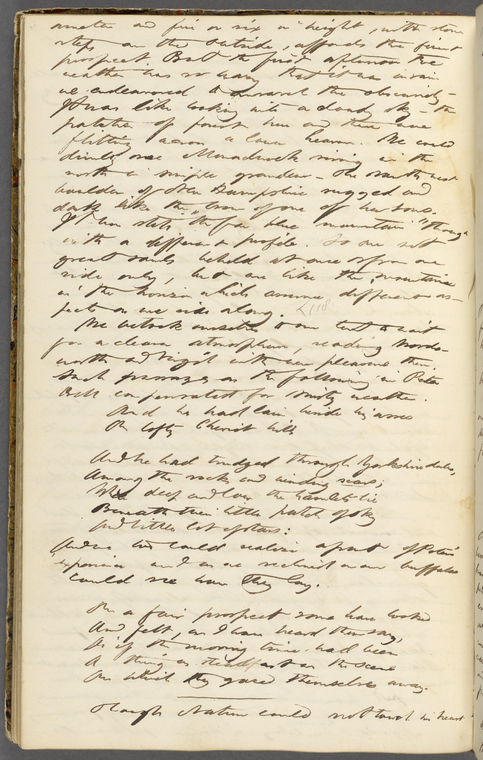 ameter and five or six in height, with stone
steps on the outside, affords the finest
prospect But the first afternoon the
weather was so hazy that it was in vain
we endeavored to unravel the obscurity—
It was like looking into a cloudy sky— the
patches of forest here and there were
flitting across a lower heaven. We could
divide one Monadnock rising in the
north in simple grandeur— the south west
boulder of New Hampshire rugged and
dark like the brow of one of her sons.
It here steps "the far blue mountain" though
with a different profile. So one
great beheld at once or from one
side only, but are like the mountains
in the horizon which assume different as-
pects as we ride along.
We betook ourselves to our tent to wait
for a clearer atmosphere, reading Words-
worth and Virgil with new pleasure there.
Such passages as the following in Peter
Bell compensated for misty weather.
And he had lain beside his asses
On lofty Cheviot hills
And he had trudged through Yorkshire dales,
Among the rocks and winding scars;
Where deep and low the hamlets lie
Beneath their little patch of sky
And little lot of stars:
And we could realize a part of Peter's
experience and as we reclined on our buffaloes
could see how they lay.
On a fair prospect some have looked
And felt, as I have heard them say,
As if the moving time had been
A thing as steadfast as the scene
On which they gazed themselves away.
though Nature could not touch his heart